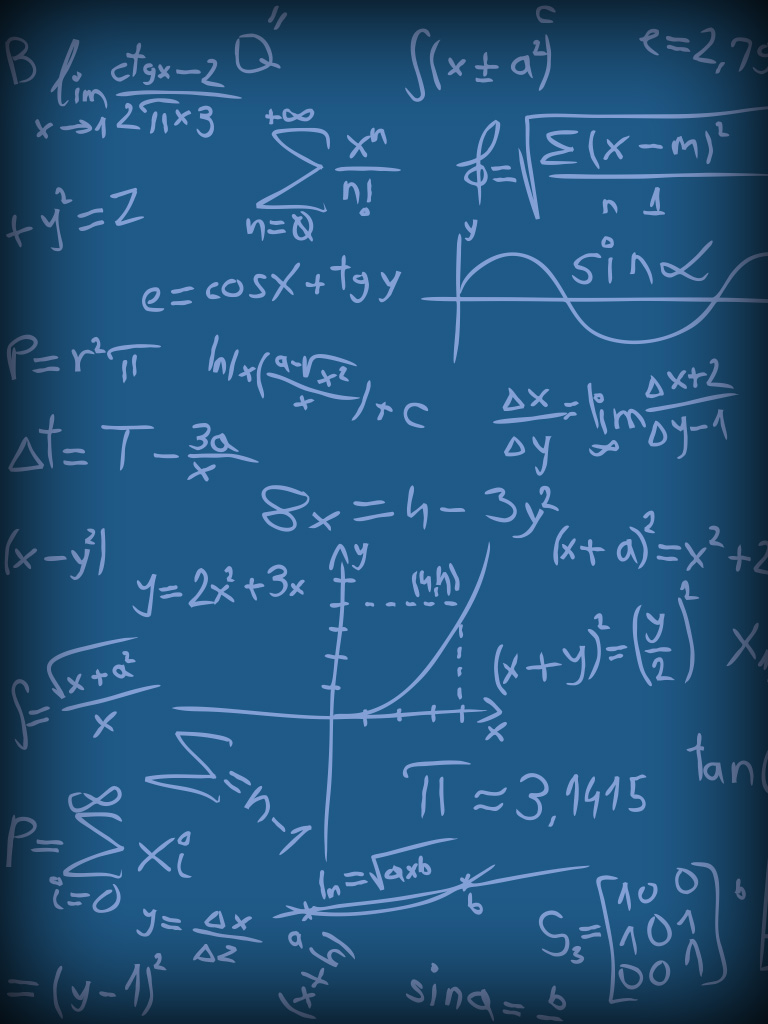 B
lim x→1 (ctgx−2)/(2πx3)
Q"
∫(x ± a²)
c
e=2,79
+∞ Σ n=0 xⁿ/n!
∂=√(Σ(x−m)²/n 1)
+y²=Z
y
sinα
e=cosx+tgy
P=r²π
ln|x(a-√x²/x)/×C
Δx/Δy = lim ∞ Δx+2/Δy−1
Δt=T−3a/x
8x=4−3y²
(x−y²)
(x+a)²=x²+2
y=2x²+3x
y
x
(x+y)²=(y/2)²
∫=√x+a²/x
Σ=n−1
tan(
π≈3,1415
P=∞ Σ i=0 xi
ln=√axb
a
b
y=Δx/Δ2
S₃=[1 0 0
1 0 1
0 0 1]
b
=(y−1)²
sina=b